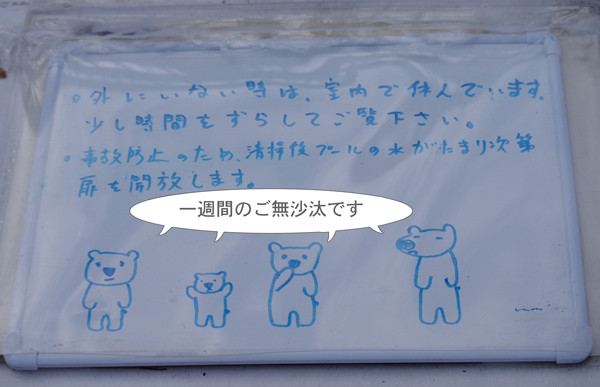 。外にいない時は、室内で休んでいます。
少し時間をずらしてご覧下さい。
。事故防止のため、清掃後プールの水がたまり次第
扉を開放します。
一週間のご無沙汰です